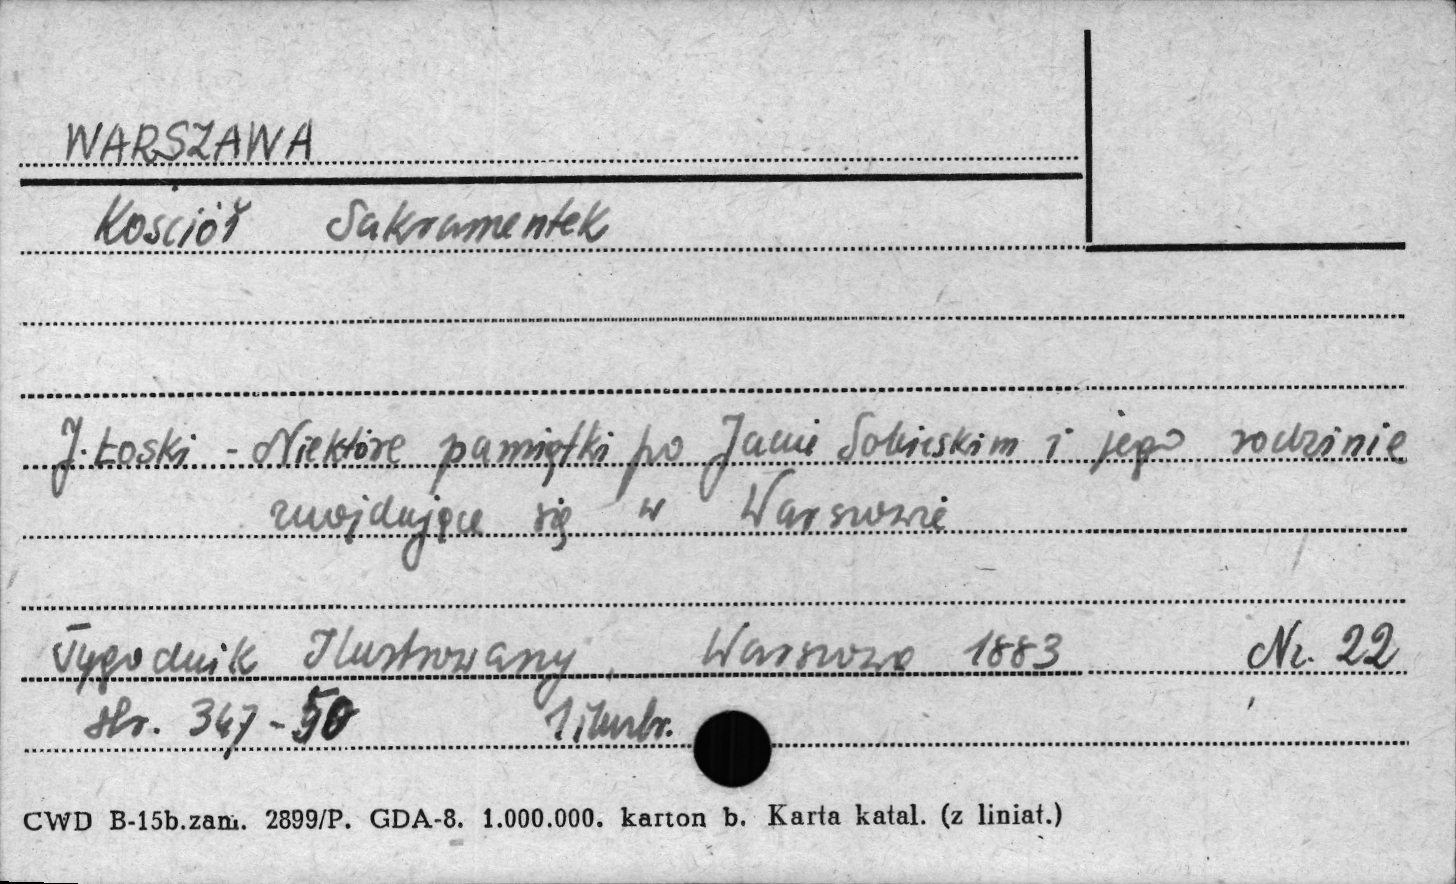 WARSZAWA
Kościół Sakramentek
J. Łoski - Niektóre pamiątki po Janie Sobieskim i jego rodzinie
znajdujące się w Warszawie
Tygodnik Ilustrowany, Warszawa 1883 Nr. 22
str. 347-50 1 ilustr.
CWD B-15b.zam. 2899/P. GDA-8. 1.000.000. karton b. Karta katal. (z liniat.)